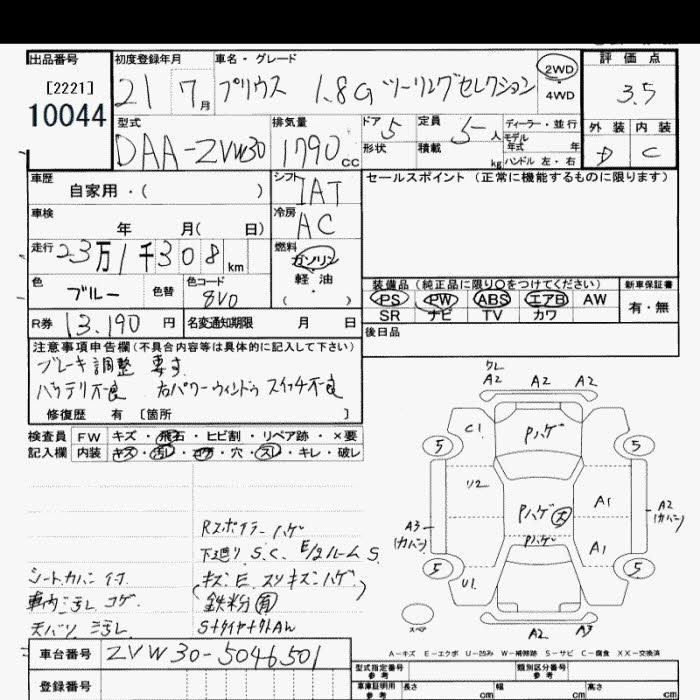 出品番号 初度登録年月 車名・グレード 評価点
[2221] 21 7月 プリウス 1.8G ツーリングセレクション 2WD 4WD 3.5
10044
型式 排気量 ドア 5 定員 5人 ディーラー・並行 外装 内装
DAA-ZVW30 1790cc 形状 積載 kg モデル年式 年 ハンドル 左・右 D C
車歴 シフト セールスポイント(正常に機能するものに限ります)
自家用・( ) IAT
車検 冷房
年 月( 日) AC
走行 23万1千308km 燃料
ガソリン
色 色替 色コード 軽油
ブルー 8V0 (・ )
装備品(純正品に限り○をつけてください) 新車保証書
PS PW ABS エアB AW 有・無
SR ナビ TV カワ
R券 13,190円 名変通知期限 月 日
後日品
注意事項申告欄(不具合内容等は具体的に記入して下さい)
ブレーキ調整 要す
バッテリ不良 右パワーウィンドゥ スイッチ不良
修復歴 有 [箇所 ]
検査員 FW キズ・飛石・ヒビ割・リペア跡・×要
記入欄 内装 キズ・汚レ・コゲ・穴・スレ・キレ・破レ
ワレ
A2 A2 A2
C1 Pハゲ
5 5
U2 Pハゲ大 A1 A2
(カバン)
A3
(カバン) Pハゲ A1
5 5
U1
スペア A2 A3
Rスポイラーハゲ
下廻り S.C. E/gルーム S.
シートカバー イタ (キズ.E.スリキズ.ハゲ)
車内 汚レ コゲ 鉄粉 有
天バリ 汚レ S+タイヤ+外AW
A-キズ E-エクボ U-凹み W-補修跡 S-サビ C-腐食 XX-交換済
車台番号 ZVW30-5046501
登録番号
型式指定番号 参考 類別区分番号 参考
車庫証明用 参考 長さ cm 幅 cm 高さ cm